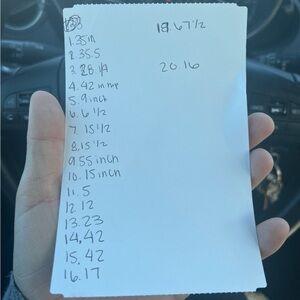 1. 35 in
2. 35.5
3. 28 1/4
4. 42 in
5. 9 inch
6. 6 1/2
7. 15 1/2
8. 15 1/2
9. 55 inch
10. 15 inch
11. 5
12. 12
13. 23
14. 42
15. 42
16. 17
18. 67 1/2
20. 16